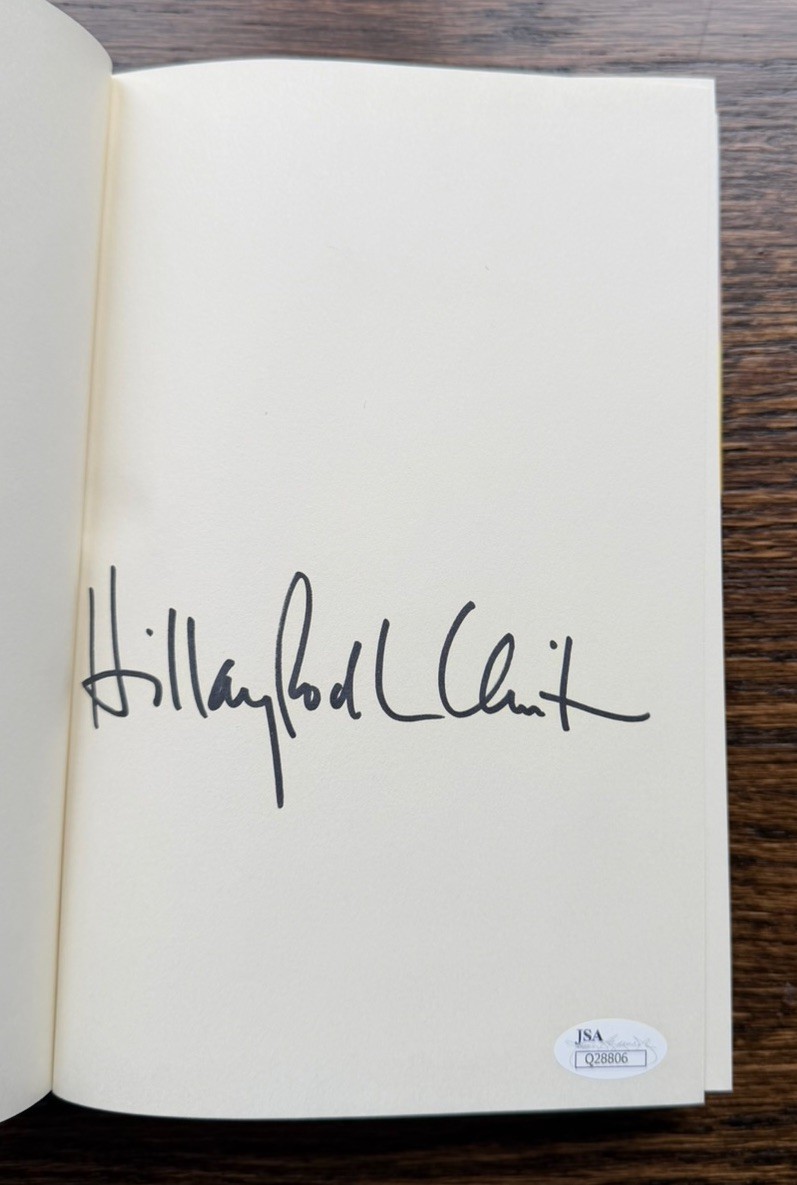 Hillary Rodh Clint
JSA
Q28806